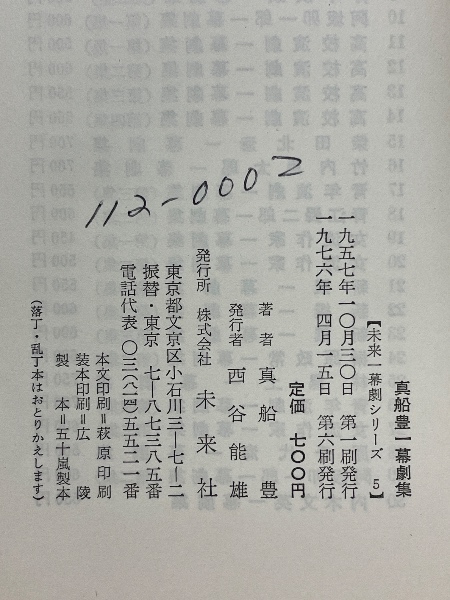 真船豊一幕劇集
【未来一幕劇シリーズ 5】
一九五七年一〇月三〇日 第一刷発行
一九七六年 四月一五日 第六刷発行
定価 七〇〇円
著者 真船豊
発行者 西谷能雄
発行所 株式会社 未来社
東京都文京区小石川三ー七ー二
振替・東京 七ー八七三八五番
電話代表 〇三(八一四)五五二一番
本文印刷=萩原印刷
装本印刷=広陵
製本=五十嵐製本
(落丁・乱丁本はおとりかえします)
112-0002